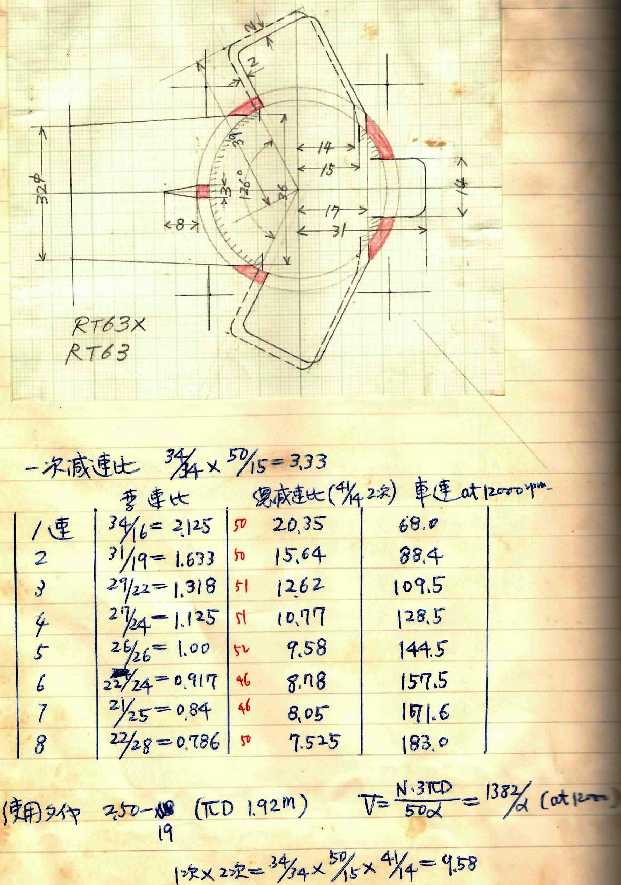 2
2
39
14
126°
36
15
32φ
3
14
8
17
31
RT63X
RT63
一次減速比 34/34 × 50/15 = 3.33
変速比 総減速比 (41/14 2次) 車速 at 12000 rpm
1速 34/16 = 2.125 50 20.35 68.0
2 31/19 = 1.633 50 15.64 88.4
3 29/22 = 1.318 51 12.62 109.5
4 27/24 = 1.125 51 10.77 128.5
5 26/26 = 1.00 52 9.58 144.5
6 22/24 = 0.917 46 8.78 157.5
7 21/25 = 0.84 46 8.05 171.6
8 22/28 = 0.786 50 7.525 183.0
使用タイヤ 2.50- 19 (πD 1.92m) V = N·3πD/50α = 1382/α (at 12000)
1次×2次 = 34/34 × 50/15 × 41/14 = 9.58